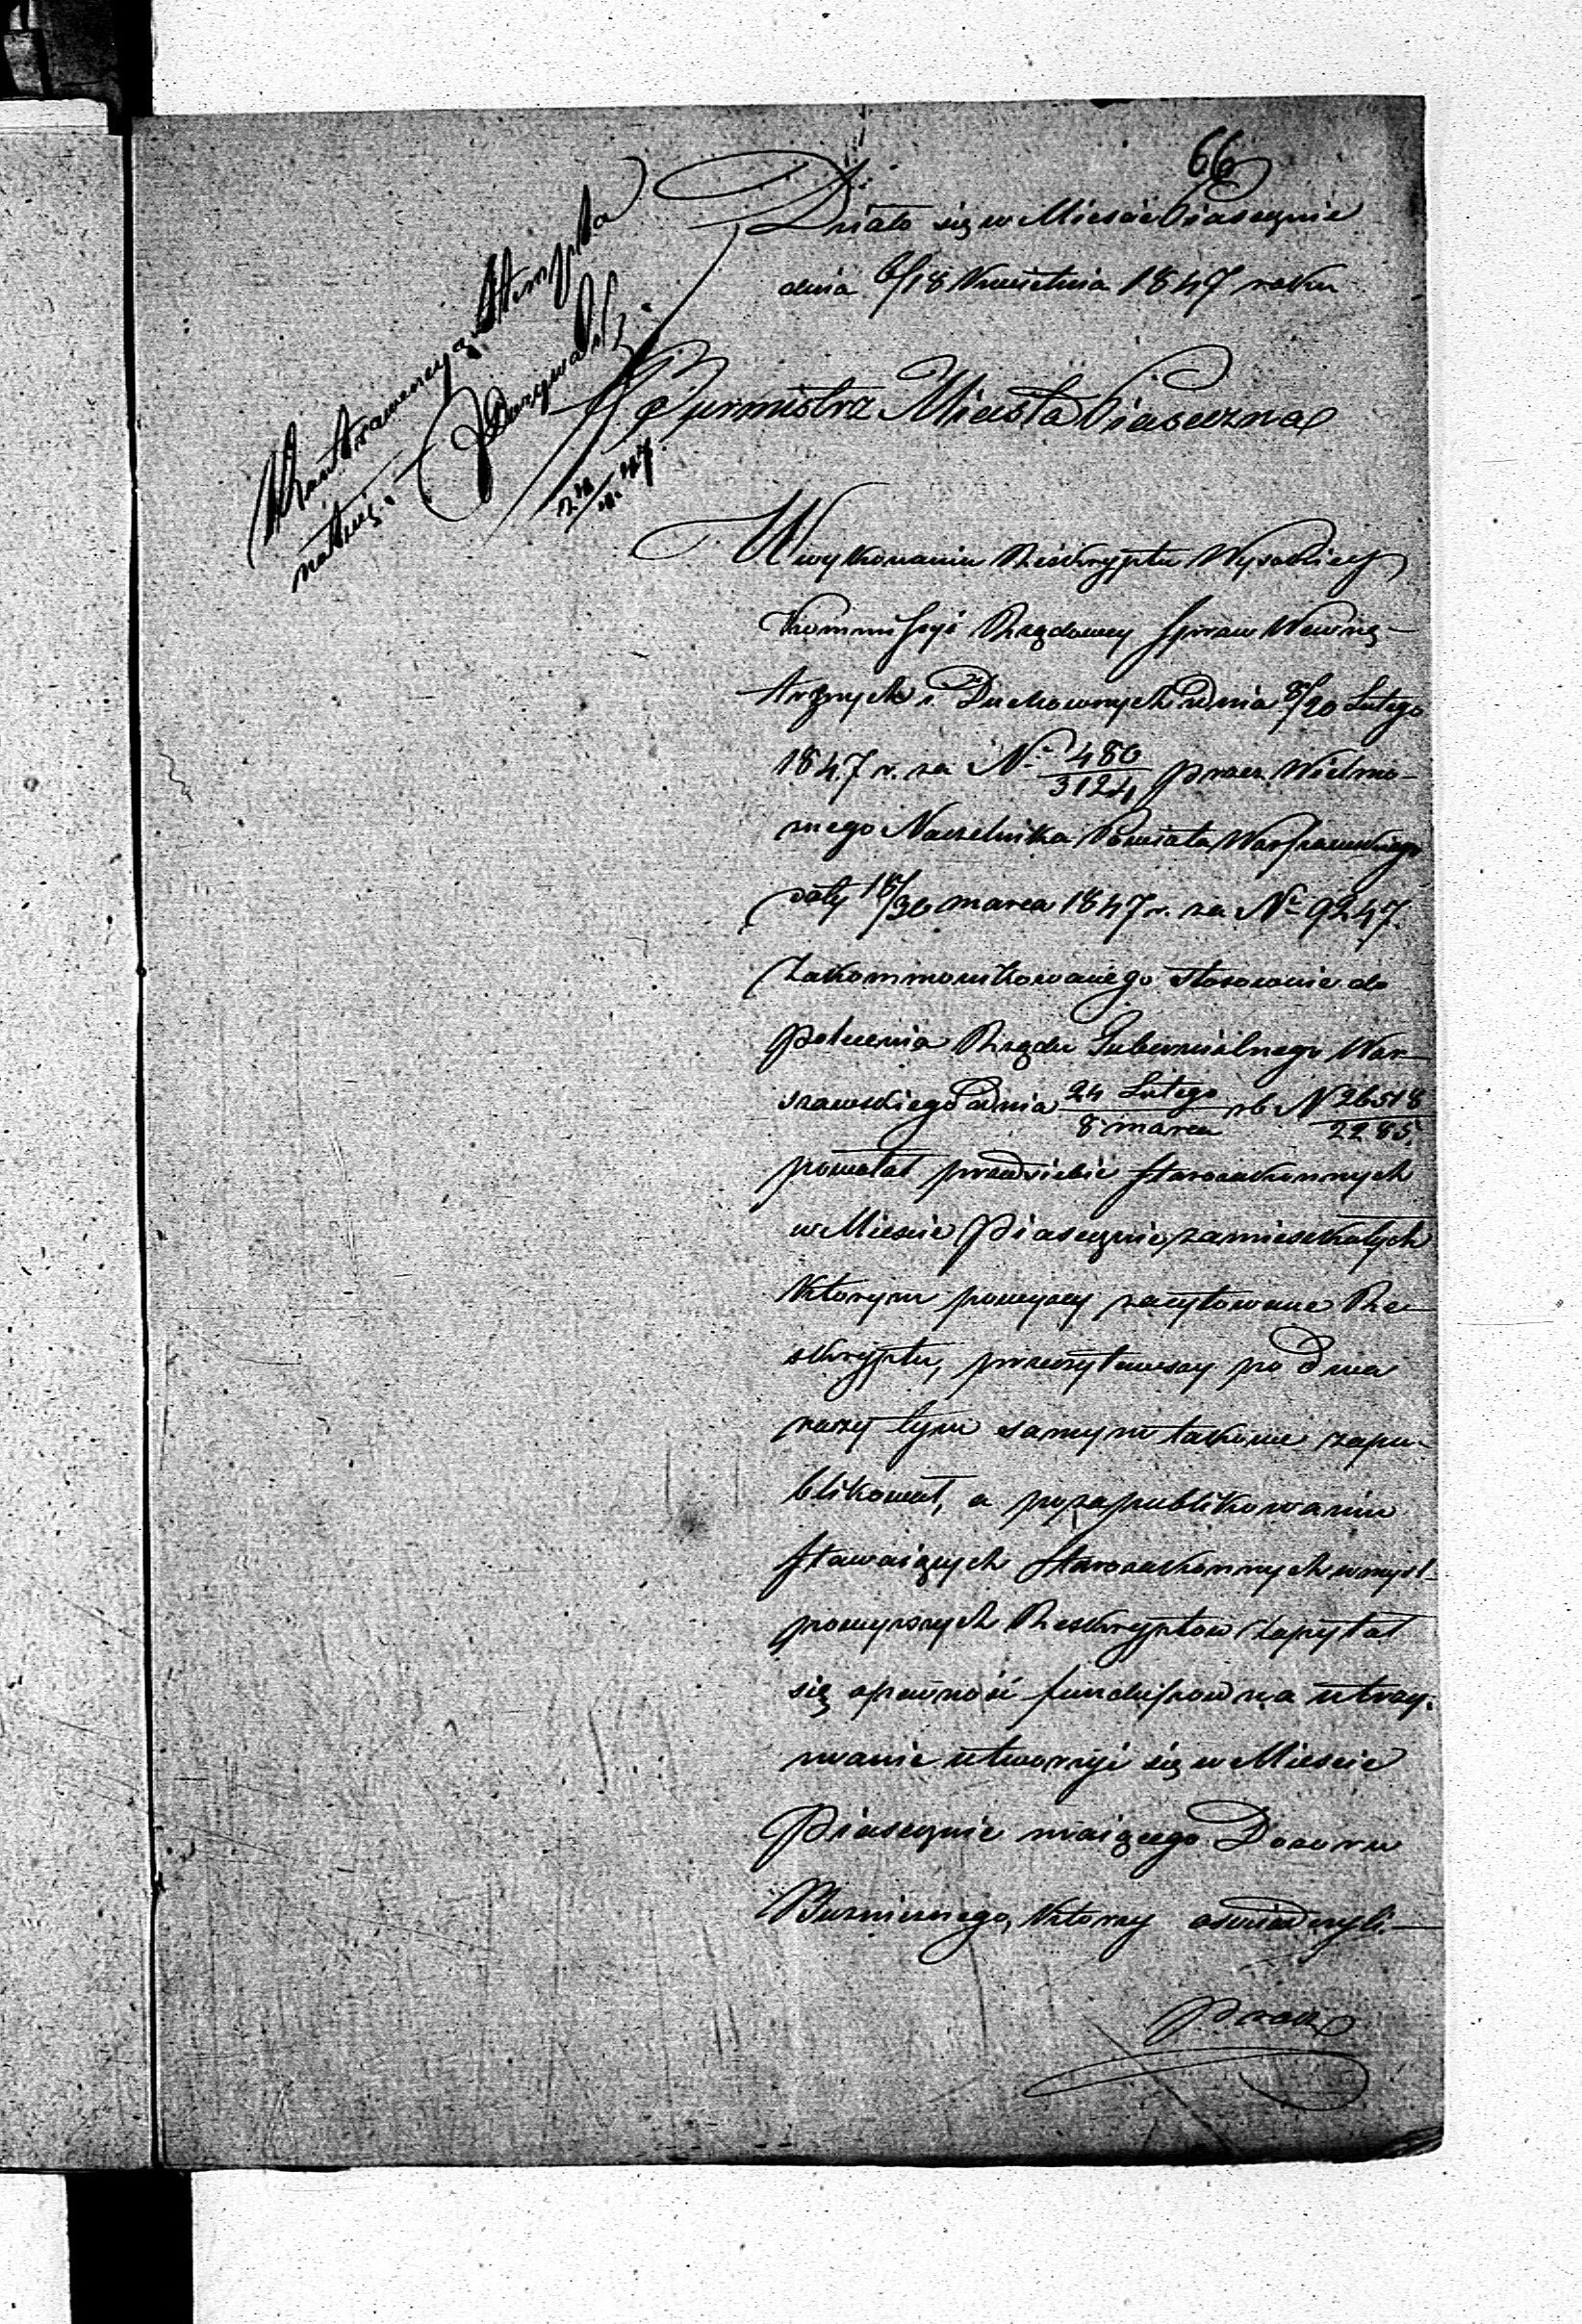 66
Działo się w Mieście Piasecznie
dnia 6/18 Kwietnia 1847 roku
Burmistrz Miasta Piaseczna
24/4 47.
W wykonaniu Reskryptu Wysokiey
Kommissyi Rządowey Spraw Wewnę-
trznych i Duchownych z dnia 8/20 Lutego
1847 r. za No 480/3124 przez Wielmo-
żnego Naczelnika Powiatu Warszawskiego
daty 18/30 marca 1847 r. za No 9247.
zakommunikowanego stosownie do
polecenia Rządu Gubernialnego War-
szawskiego z dnia 24 Lutego/8 marca rb N 26518/2285.
powołał przed siebie starozakonnych
w Mieście Piasecznie zamieszkałych
którym powyżey zacytowane Re-
skryptu, przeczytawszy po dwa
razy tym samym takowe zapu-
blikował, a po zapublikowaniu
stawaiących starozakonnych w myśl
powyższych Reskryptów zapytał
się o pewność funduszów na utrzy-
manie utworzyć się w Mieście
Piasecznie maiącego Dozoru
Bużniczego, którzy oświadczyli